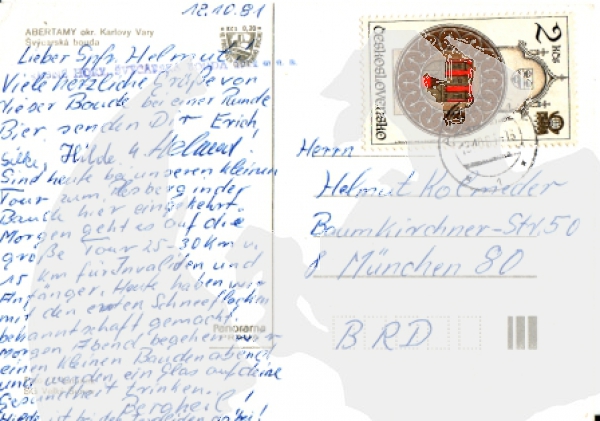 12.10.81
ABERTAMY okr. Karlovy Vary
Švýcarská bouda
Kčs 0,20
Lieber Spfr. Helmut!
Viele herzliche Grüße von
dieser Baude bei einer Runde
Bier senden Dir Erich,
Hilde u. Helmut!
Sind heute bei unseren kleinen
Tour zum in der
Baude hier eingekehrt.
Morgen geht es auf die
große Tour 25-30 Km u.
15 Km für Invaliden und
Anfänger. Heute haben wir
mit den ersten Schneeflocken
bekanntschaft gemacht.
Morgen Abend begehen wir
einen kleinen Baudenabend
und werden ein Glas auf deine
Gesundheit trinken.
Bergheil!
Panorama
Československo
2 Kčs
Herrn
Helmut Kolmeder
Baumkirchner-Str. 50
8 München 80
BRD